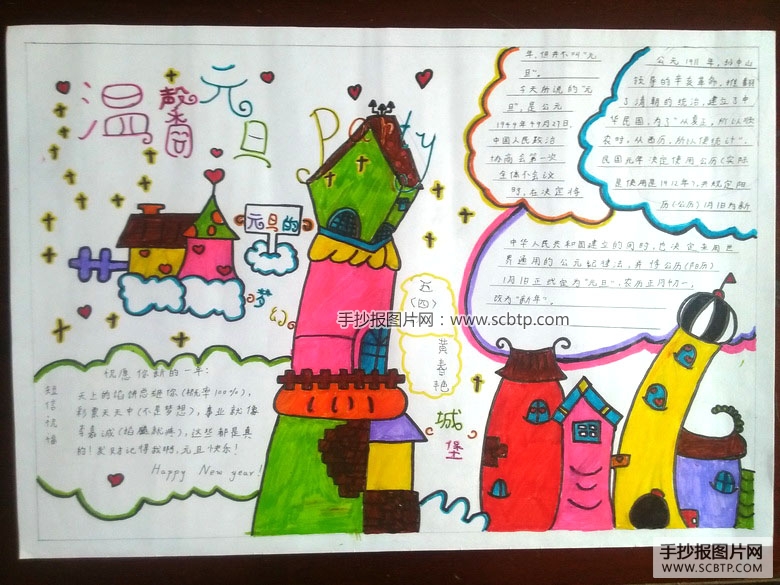 温馨元旦
Party
元旦的
梦幻
城堡
五(四)
黄春艳
短信祝福
祝愿你新的一年:
天上的馅饼总砸你(概率100%),
彩票天天中(不是梦想),事业就像
李嘉诚(抬腿就来),这些都是真
的!发财记得我啊,元旦快乐!
Happy New year!
年,但并不叫"元
旦"。
今天所说的"元
旦",是公元
1949年9月27日,
中国人民政治
协商会第一次
全体会议
时,在决定将
公元1911年,孙中山
领导的辛亥革命,推翻
了清朝的统治,建立了中
华民国,为了"从夏正,所以顺
农时,从西历,所以便统计",
民国元年决定使用公历(实际
是使用是1912年),并规定阳
历(公历)1月1日为新
中华人民共和国建立的同时,也决定采用世
界通用的公元纪律法,并将公历(阳历)
1月1日正式定为"元旦",农历正月初一
改为"新年"。
手抄报图片网:www.scbtp.com
手抄报图片网
WWW.SCBTP.COM